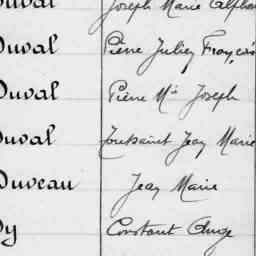 Duval Joseph Marie Alphon
Duval Pierre Julien François
Duval Pierre Mie Joseph
Duval Toussaint Jean Marie
Duveau Jean Marie
Dy Constant Ange